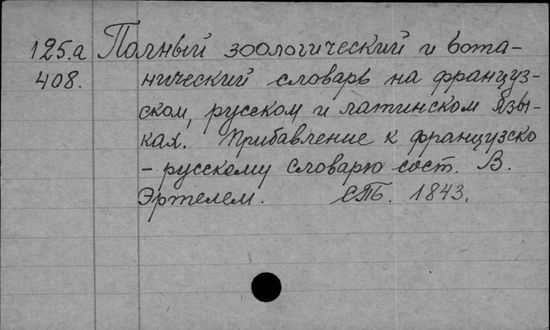 125.a Полный зоологический и бота-
408. нический словарь на француз-
ском, русском и латинском язы-
ках. Прибавление к французско
- русскому словарю сост. В.
Эртелем. СПБ. 1843.